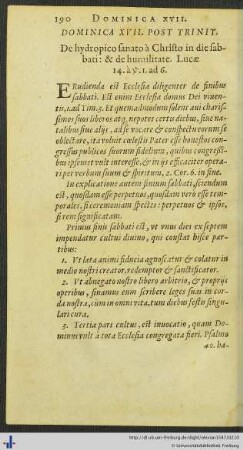 190 DOMINICA XVII.
DOMINICA XVII. POST TRINIT.
De hydropico sanato à Christo in die sab-
bati: & de humilitate. Lucæ
14. à ỳ. 1. ad 6.
ERudienda est Ecclesia diligenter de finibus
sabbati. Est enim Ecclesia domus Dei viuen-
tis, 1. ad Tim. 3. Et quemadmodum solent aui charissi-
mos suos liberos atq; nepotes certis diebus, siue na-
talibus siue alijs, ad se vocare & conspectu eorum se
oblectare, ita voluit cœlestis Pater esse honestos
congressus publicos suorum fidelium, quibus congressi-
bus ipsemet vult interesse, & in ijs efficaciter opera-
ri per verbum suum & spiritum, 2. Cor. 6. in fine.
In explicatione autem finium sabbati, sciendum
est, quosdam esse perpetuos, quosdam verò esse tem-
porales, si ceremoniam spectes: perpetuos & ipsos,
si rem significatam.
Primus finis sabbati est, vt vnus dies ex septem
impendatur cultui diuino, qui constat hisce par-
tibus:
1. Vt læta animi fiducia agnoscatur & colatur in
medio nostri creator, redemptor & sanctificator.
2. Vt abnegato nostro libero arbitrio, & proprijs
operibus, sinamus eum scribere leges suas in cor-
da nostra, cùm in omni vita, tum diebus festis singu-
lari cura.
3. Tertia pars cultus, est inuocatio, quam Do-
minus vult à tota Ecclesia congregata fieri. Psalmo
42. ha-
© Universitätsbibliothek Freiburg